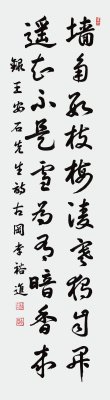 墙角数枝梅凌寒独自开
遥知不是雪为有暗香来
录王安石先生诗古冈李裕进